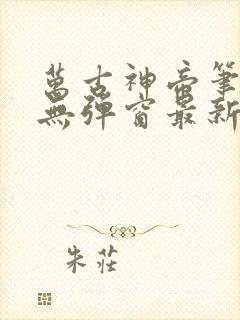 萬古神帝筆
無彈窗最新
朱莊